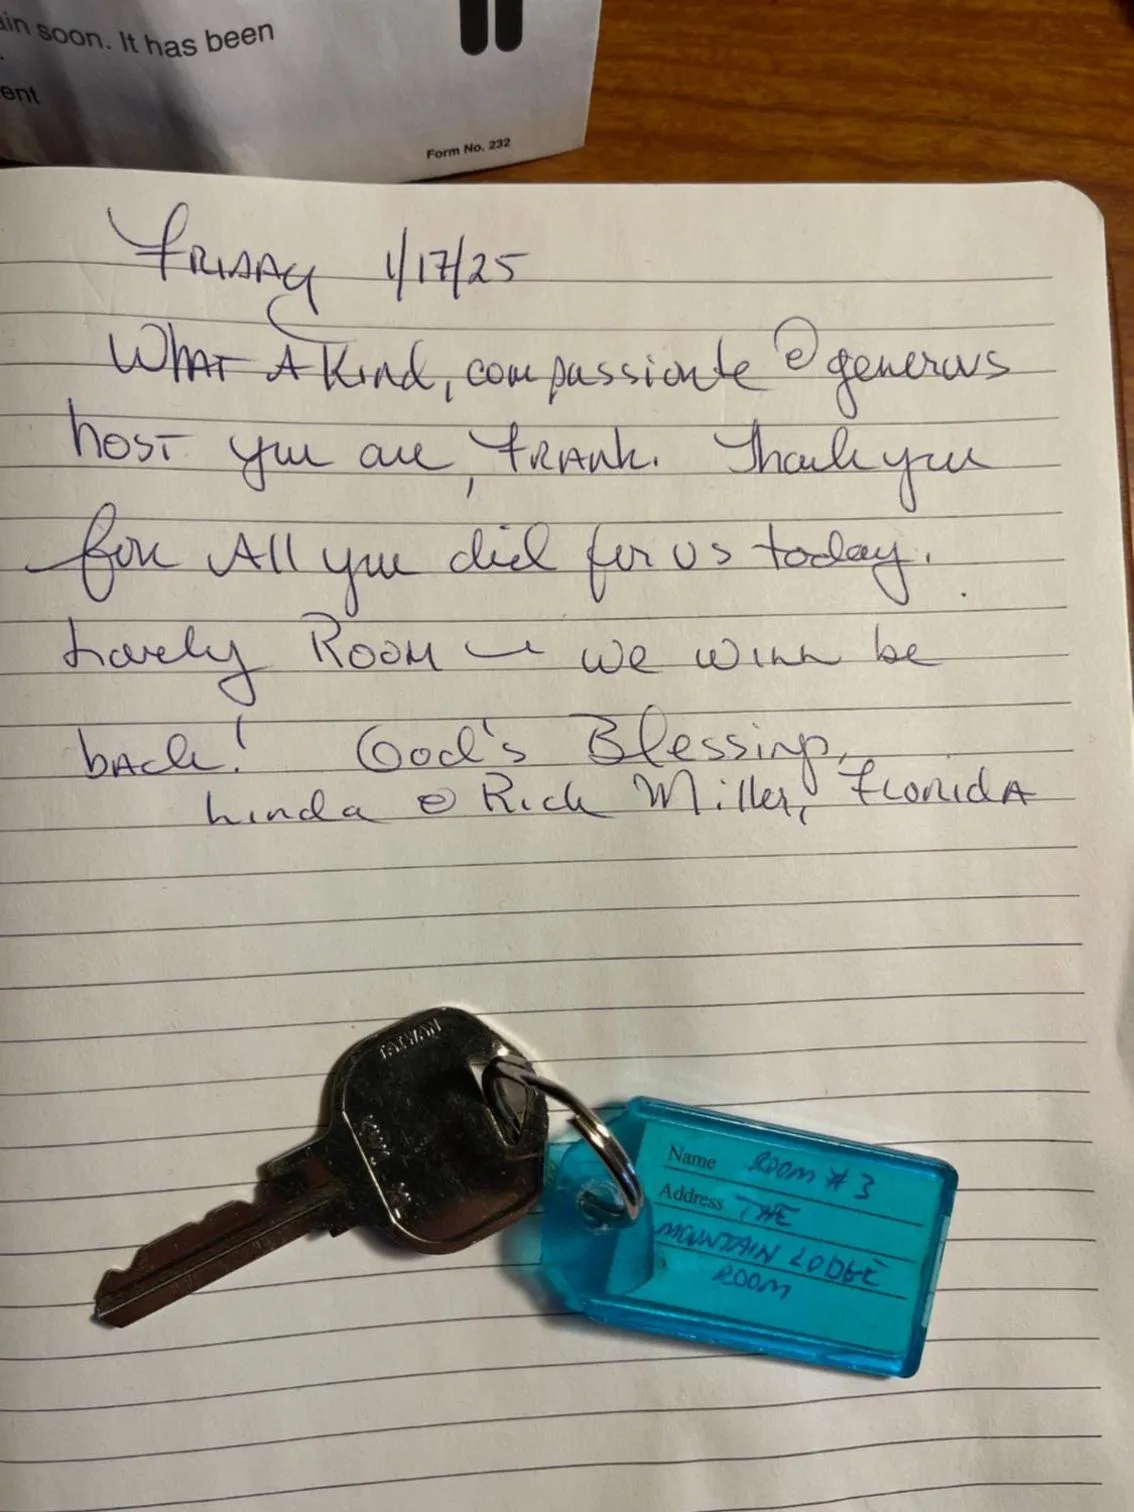 ain soon. It has been
ent
Form No. 232
FRIDAY 1/17/25
WHAT A Kind, compassionte & generous
host you are, FRANK. Thank you
for All you did for us today.
Lovely ROOM – we will be
back! God's Blessing,
Linda & Rick Miller, FLORIDA
TAIWAN
Name ROOM # 3
Address THE
MOUNTAIN LODGE
ROOM